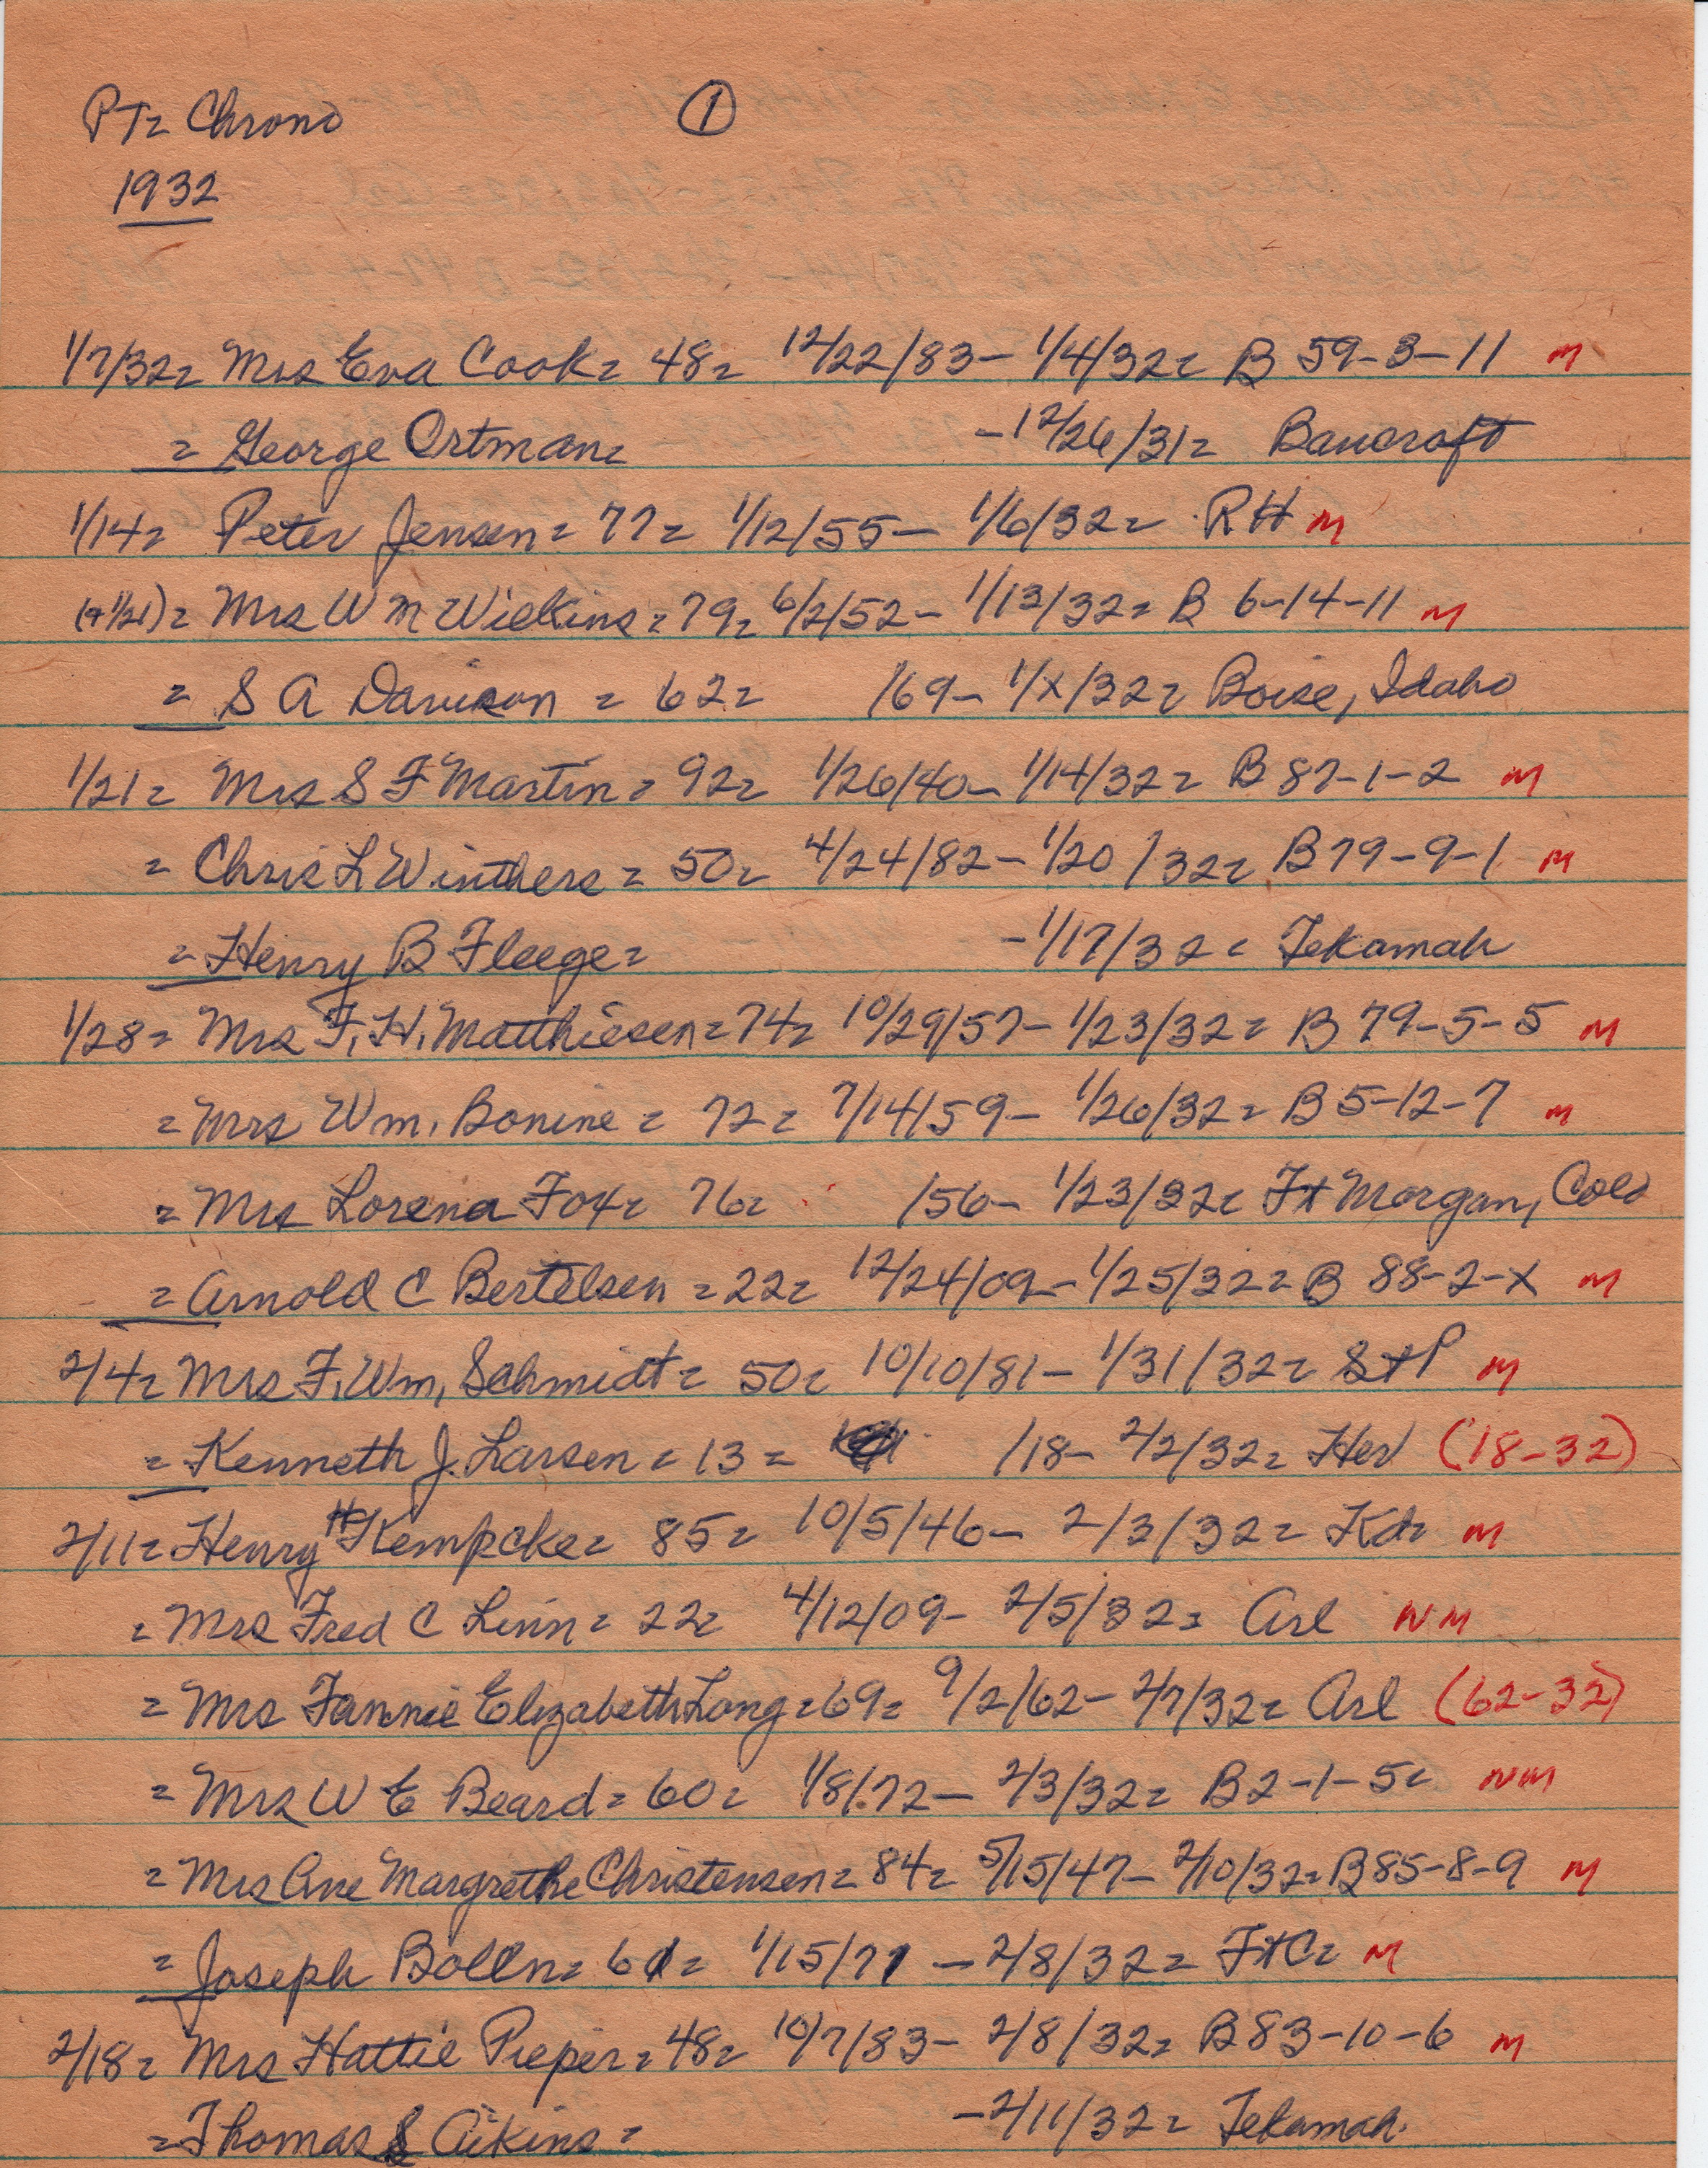 PT= Chrono ①
1932
1/7/32= Mrs Eva Cook= 48= 12/22/83- 1/4/32= B 59-3-11 M
= George Ortman= -12/26/31= Bancroft
1/14= Peter Jensen= 77= 1/12/55- 1/6/32= RH M
(+1/21)= Mrs W M Wilkins= 79= 6/2/52- 1/13/32= B 6-14-11 M
= S A Davison = 62= /69- 1/X/32= Boise, Idaho
1/21= Mrs S F Martin= 92= 1/26/40- 1/14/32= B 87-1-2 M
= Chris L Winthers= 50= 4/24/82- 1/20/32= B 79-9-1 M
= Henry B Fleege= -1/17/32= Tekamah
1/28= Mrs F. H. Matthiesen= 74= 10/29/57- 1/23/32= B 79-5-5 M
= Mrs Wm. Bonine= 72= 7/14/59- 1/26/32= B 5-12-7 M
= Mrs Lorena Fox= 76= /56- 1/23/32= Ft Morgan, Colo
= Arnold C Bertelsen= 22= 12/24/09- 1/25/32= B 88-2-X M
2/4= Mrs F. Wm. Schmidt= 50= 10/10/81- 1/31/32= StP M
= Kenneth J. Larsen= 13= /18- 2/2/32= Her (18-32)
2/11= Henry H Kempcke= 85= 10/5/46- 2/3/32= Kd= M
= Mrs Fred C Linn= 22= 4/12/09- 2/5/32= Arl NM
= Mrs Fannie Elizabeth Long= 69= 9/2/62- 2/7/32= Arl (62-32)
= Mrs W E Beard= 60= 1/8/72- 2/3/32= B 2-1-5= NM
= Mrs Ane Margrethe Christensen= 84= 5/15/47- 2/10/32= B 85-8-9 M
= Joseph Bolln= 61= 1/15/71 - 2/8/32= FtC= M
2/18= Mrs Hattie Pieper= 48= 10/7/83- 2/8/32= B 83-10-6 M
= Thomas S Aikins= -2/11/32= Tekamah